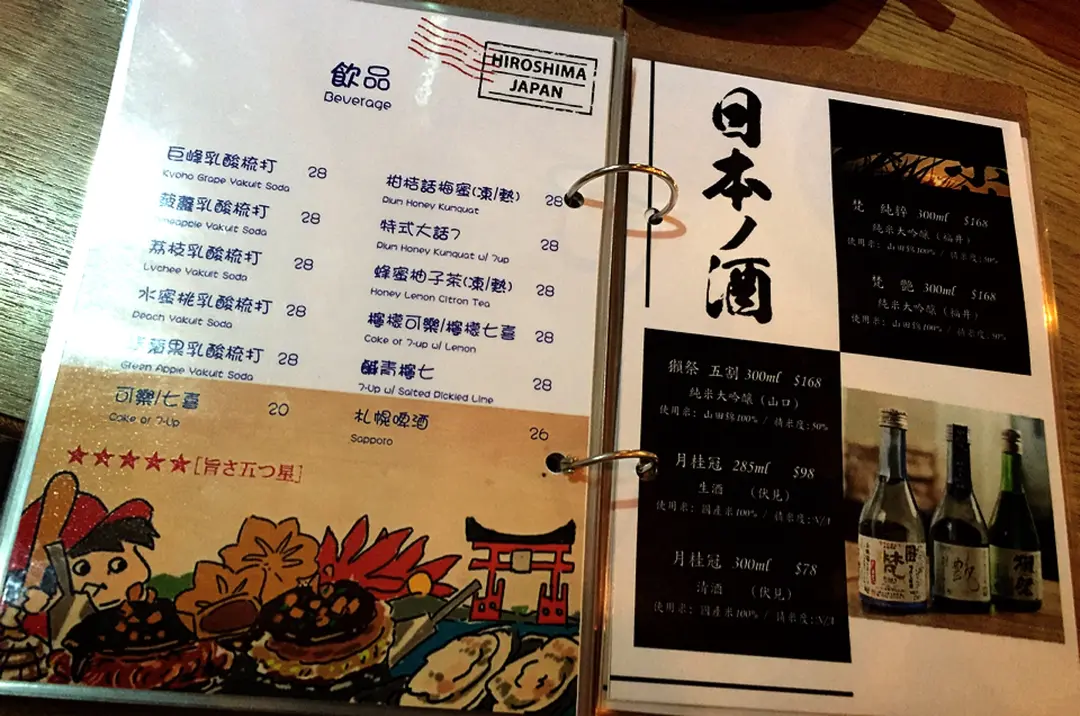 HIROSHIMA
JAPAN
飲品
Beverage
巨峰乳酸梳打 28
Kyoho Grape Yakult Soda
菠蘿乳酸梳打 28
Pineapple Yakult Soda
荔枝乳酸梳打 28
Lychee Yakult Soda
水蜜桃乳酸梳打 28
Peach Yakult Soda
蘋果乳酸梳打 28
Green Apple Yakult Soda
可樂/七喜 20
Coke or 7-Up
柑桔話梅蜜(凍/熱) 28
Plum Honey Kumquat
特式大話7 28
Plum Honey Kumquat w/ 7up
蜂蜜柚子茶(凍/熱) 28
Honey Lemon Citron Tea
檸檬可樂/檸檬七喜 28
Coke or 7-up w/ Lemon
鹹青檸七 28
7-Up w/ Salted Pickled Lime
札幌啤酒 26
Sapporo
★★★★★[旨さ五つ星]
日本ノ酒
梵 純粹 300ml $168
純米大吟釀（福井）
使用米: 山田錦100% / 精米度:50%
梵 艶 300ml $168
純米大吟釀（福井）
使用米: 山田錦100% / 精米度:50%
獺祭 五割 300ml $168
純米大吟釀（山口）
使用米: 山田錦100% / 精米度:50%
月桂冠 285ml $98
生酒 （伏見）
使用米: 國產米100% / 精米度:N/A
月桂冠 300ml $78
清酒 （伏見）
使用米: 國產米100% / 精米度:N/A
梵
艶
獺祭